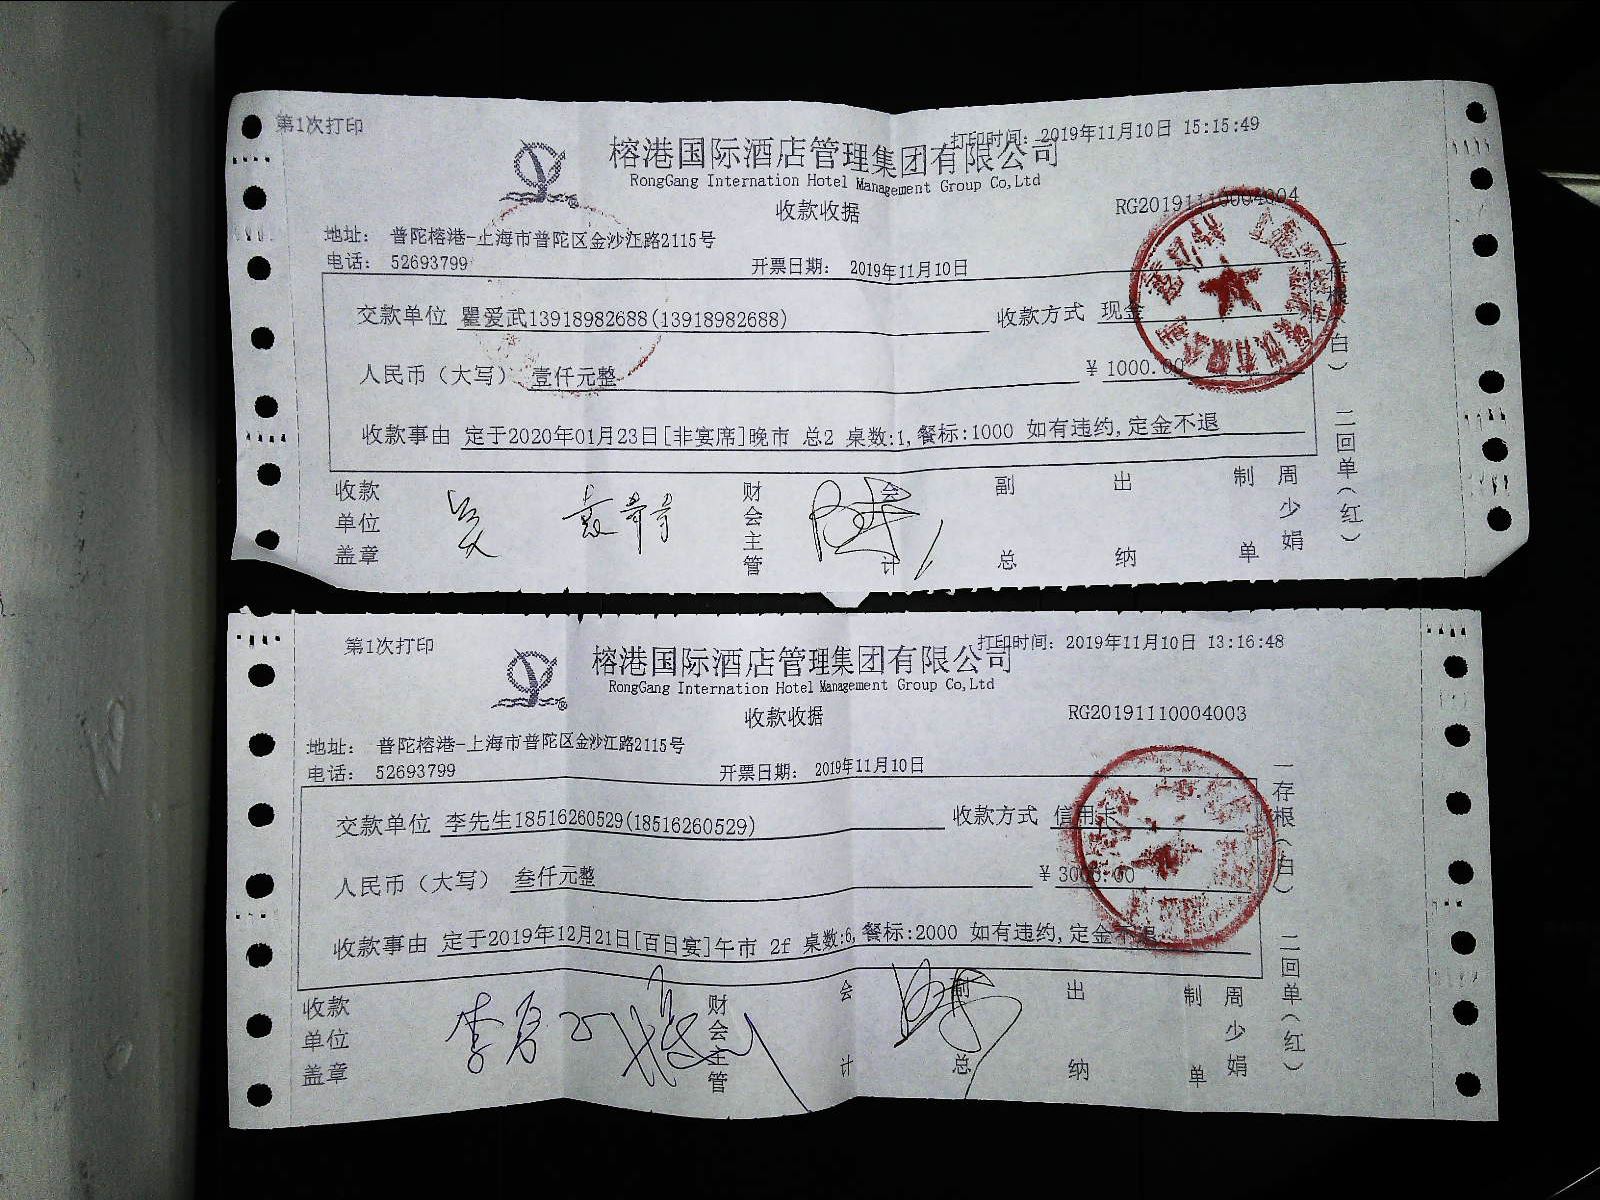 第1次打印
打印时间：2019年11月10日 15:15:49
榕港国际酒店管理集团有限公司
RongGang Internation Hotel Management Group Co,Ltd
收款收据
RG20191110004004
地址： 普陀榕港-上海市普陀区金沙江路2115号
电话： 52693799
开票日期： 2019年11月10日
交款单位 瞿爱武13918982688(13918982688) 收款方式 现金
人民币（大写） 壹仟元整 ￥ 1000.00
收款事由 定于2020年01月23日[非宴席]晚市 总2 桌数:1,餐标:1000 如有违约,定金不退
收款单位盖章 财会主管 会计 副总 出纳 制单 周少娟
一存根（白） 二回单（红）
第1次打印
打印时间：2019年11月10日 13:16:48
榕港国际酒店管理集团有限公司
RongGang Internation Hotel Management Group Co,Ltd
收款收据
RG20191110004003
地址： 普陀榕港-上海市普陀区金沙江路2115号
电话： 52693799
开票日期： 2019年11月10日
交款单位 李先生18516260529(18516260529) 收款方式 信用卡
人民币（大写） 叁仟元整 ￥ 3000.00
收款事由 定于2019年12月21日[百日宴]午市 2f 桌数:6,餐标:2000 如有违约,定金不退
收款单位盖章 财会主管 会计 副总 出纳 制单 周少娟
一存根（白） 二回单（红）